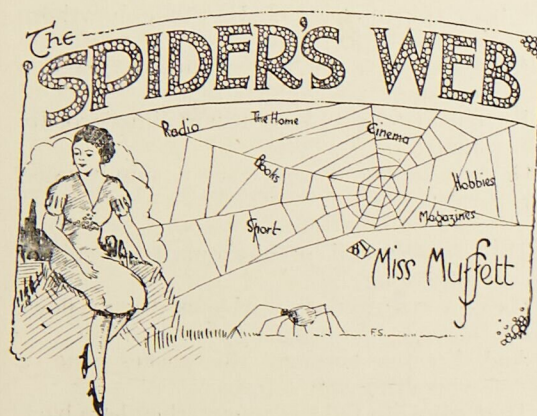 The
SPIDER'S WEB
Radio
The Home
Cinema
Books
Hobbies
Magazines
Sport
BY
Miss Muffett
F.S.